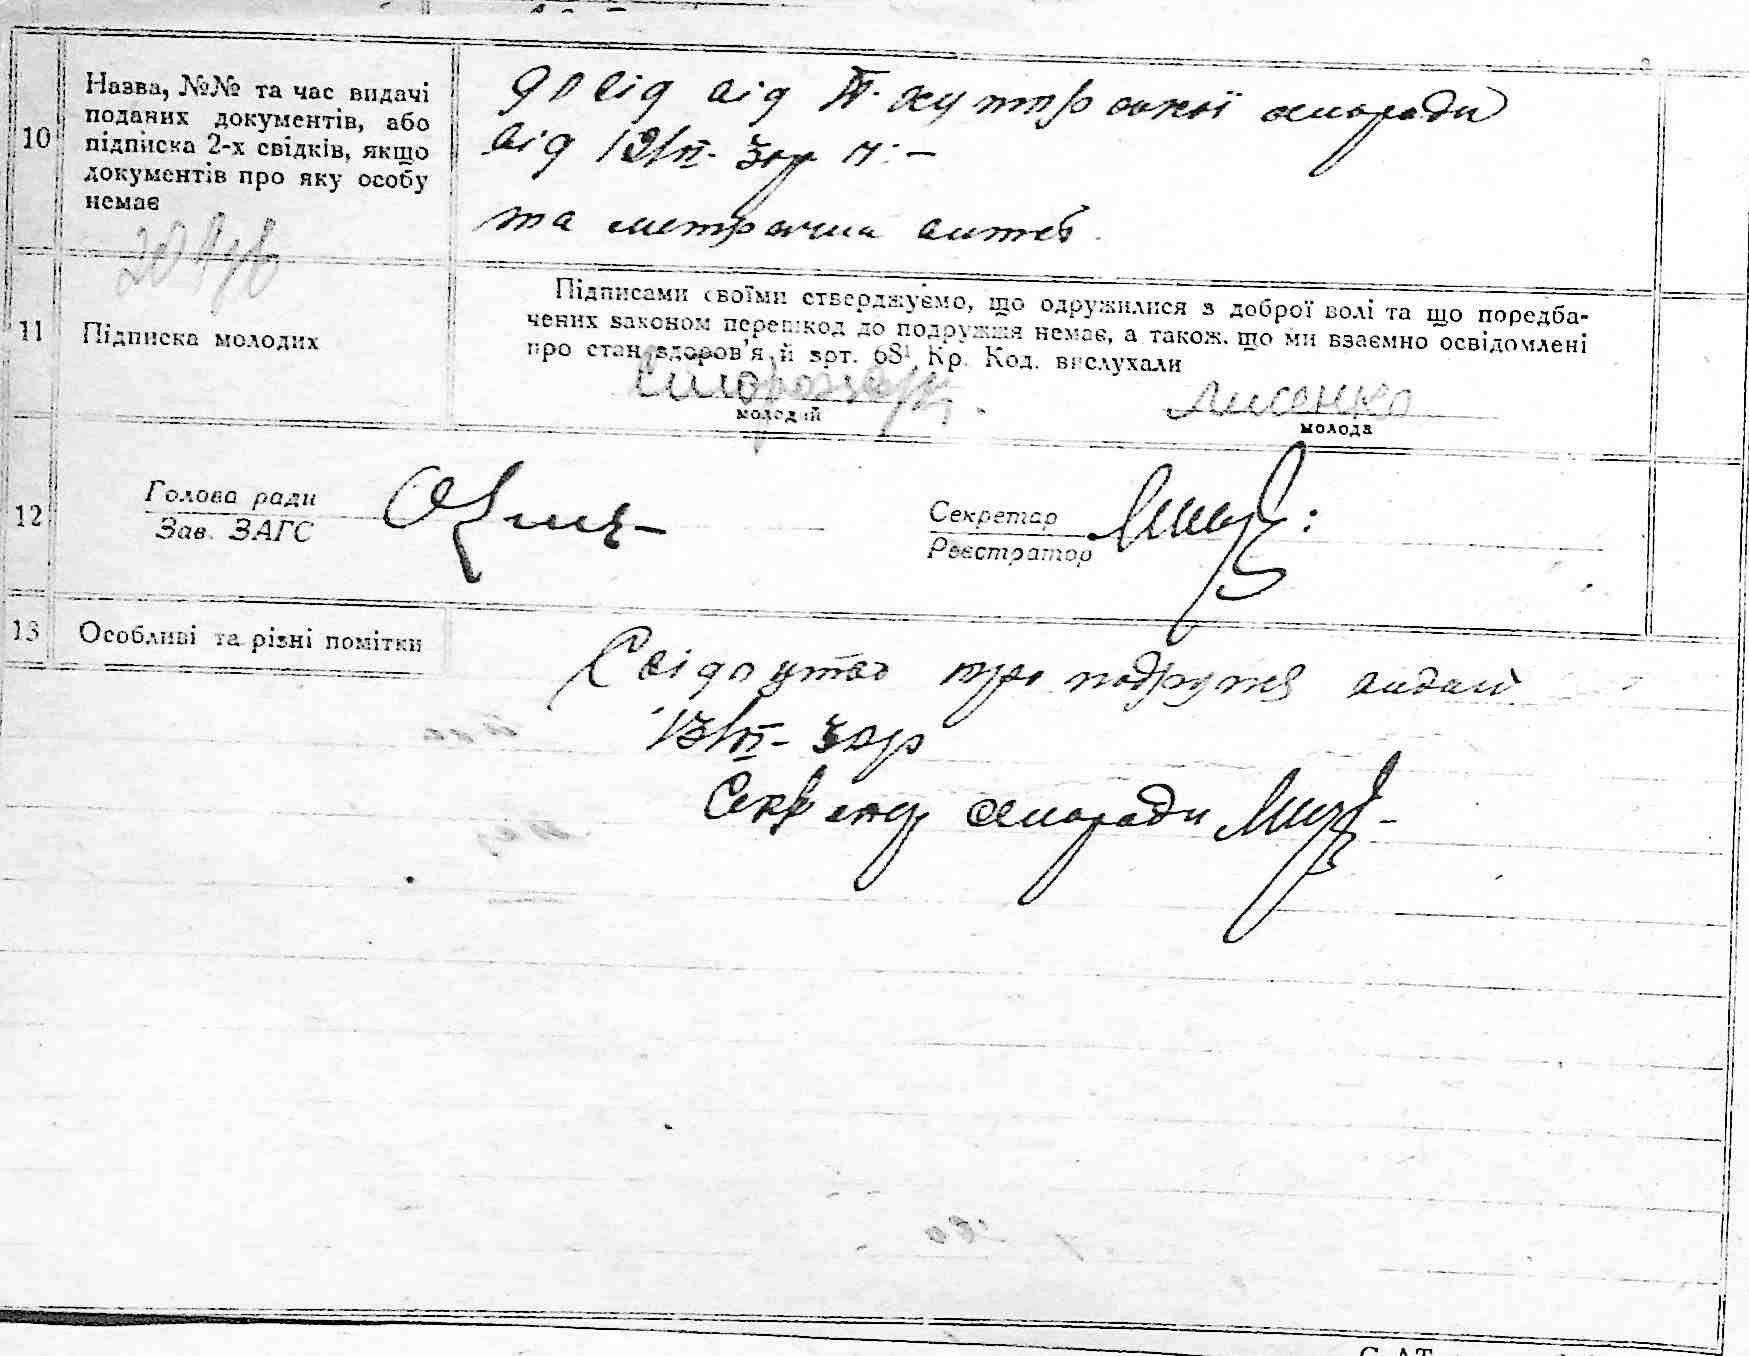 10
Назва, №№ та час видачі
поданих документів, або
підписка 2-х свідків, якщо
документів про яку особу
немає
від П. хутірської сільради
від
та метрична витяг.
11
Підписка молодих
Підписами своїми стверджуємо, що одружилися з доброї волі та що передба-
чених законом перешкод до подружжя немає, а також, що ми взаємно освідомлені
про стан здоров'я й арт. 68¹ Кр. Код. вислухали
молодий
Лисенко
молода
12
Голова ради
Зав. ЗАГС
Секретар
Реєстратор
13
Особливі та різні помітки
Свідоцтво про подружжя видані
Секретар сільради